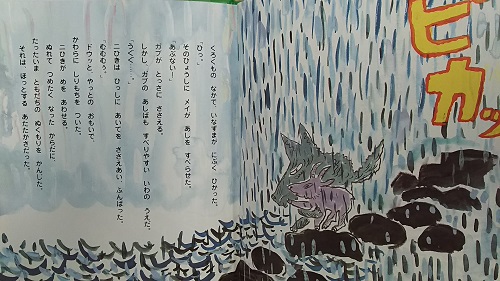 くろくもの なかで、いなずまが にぶく ひかった。
「ひっ。」
そのひょうしに メイが あしを すべらせた。
「あぶないー」
ガブが とっさに ささえる。
しかし、ガブの あしばも すべりやすい いわの うえだ。
「うくく……。」
二ひきは ひっしに あいてを ささえあい、ふんばった。
「むむむぅ。」
ドウッと やっとの おもいで、
かわらに しりもちを ついた。
二ひきが めを あわせる。
ぬれて つめたく なった からだに、
たったいま ともだちの ぬくもりを かんじた。
それは ほっとする あたたかさだった。
ピカッ